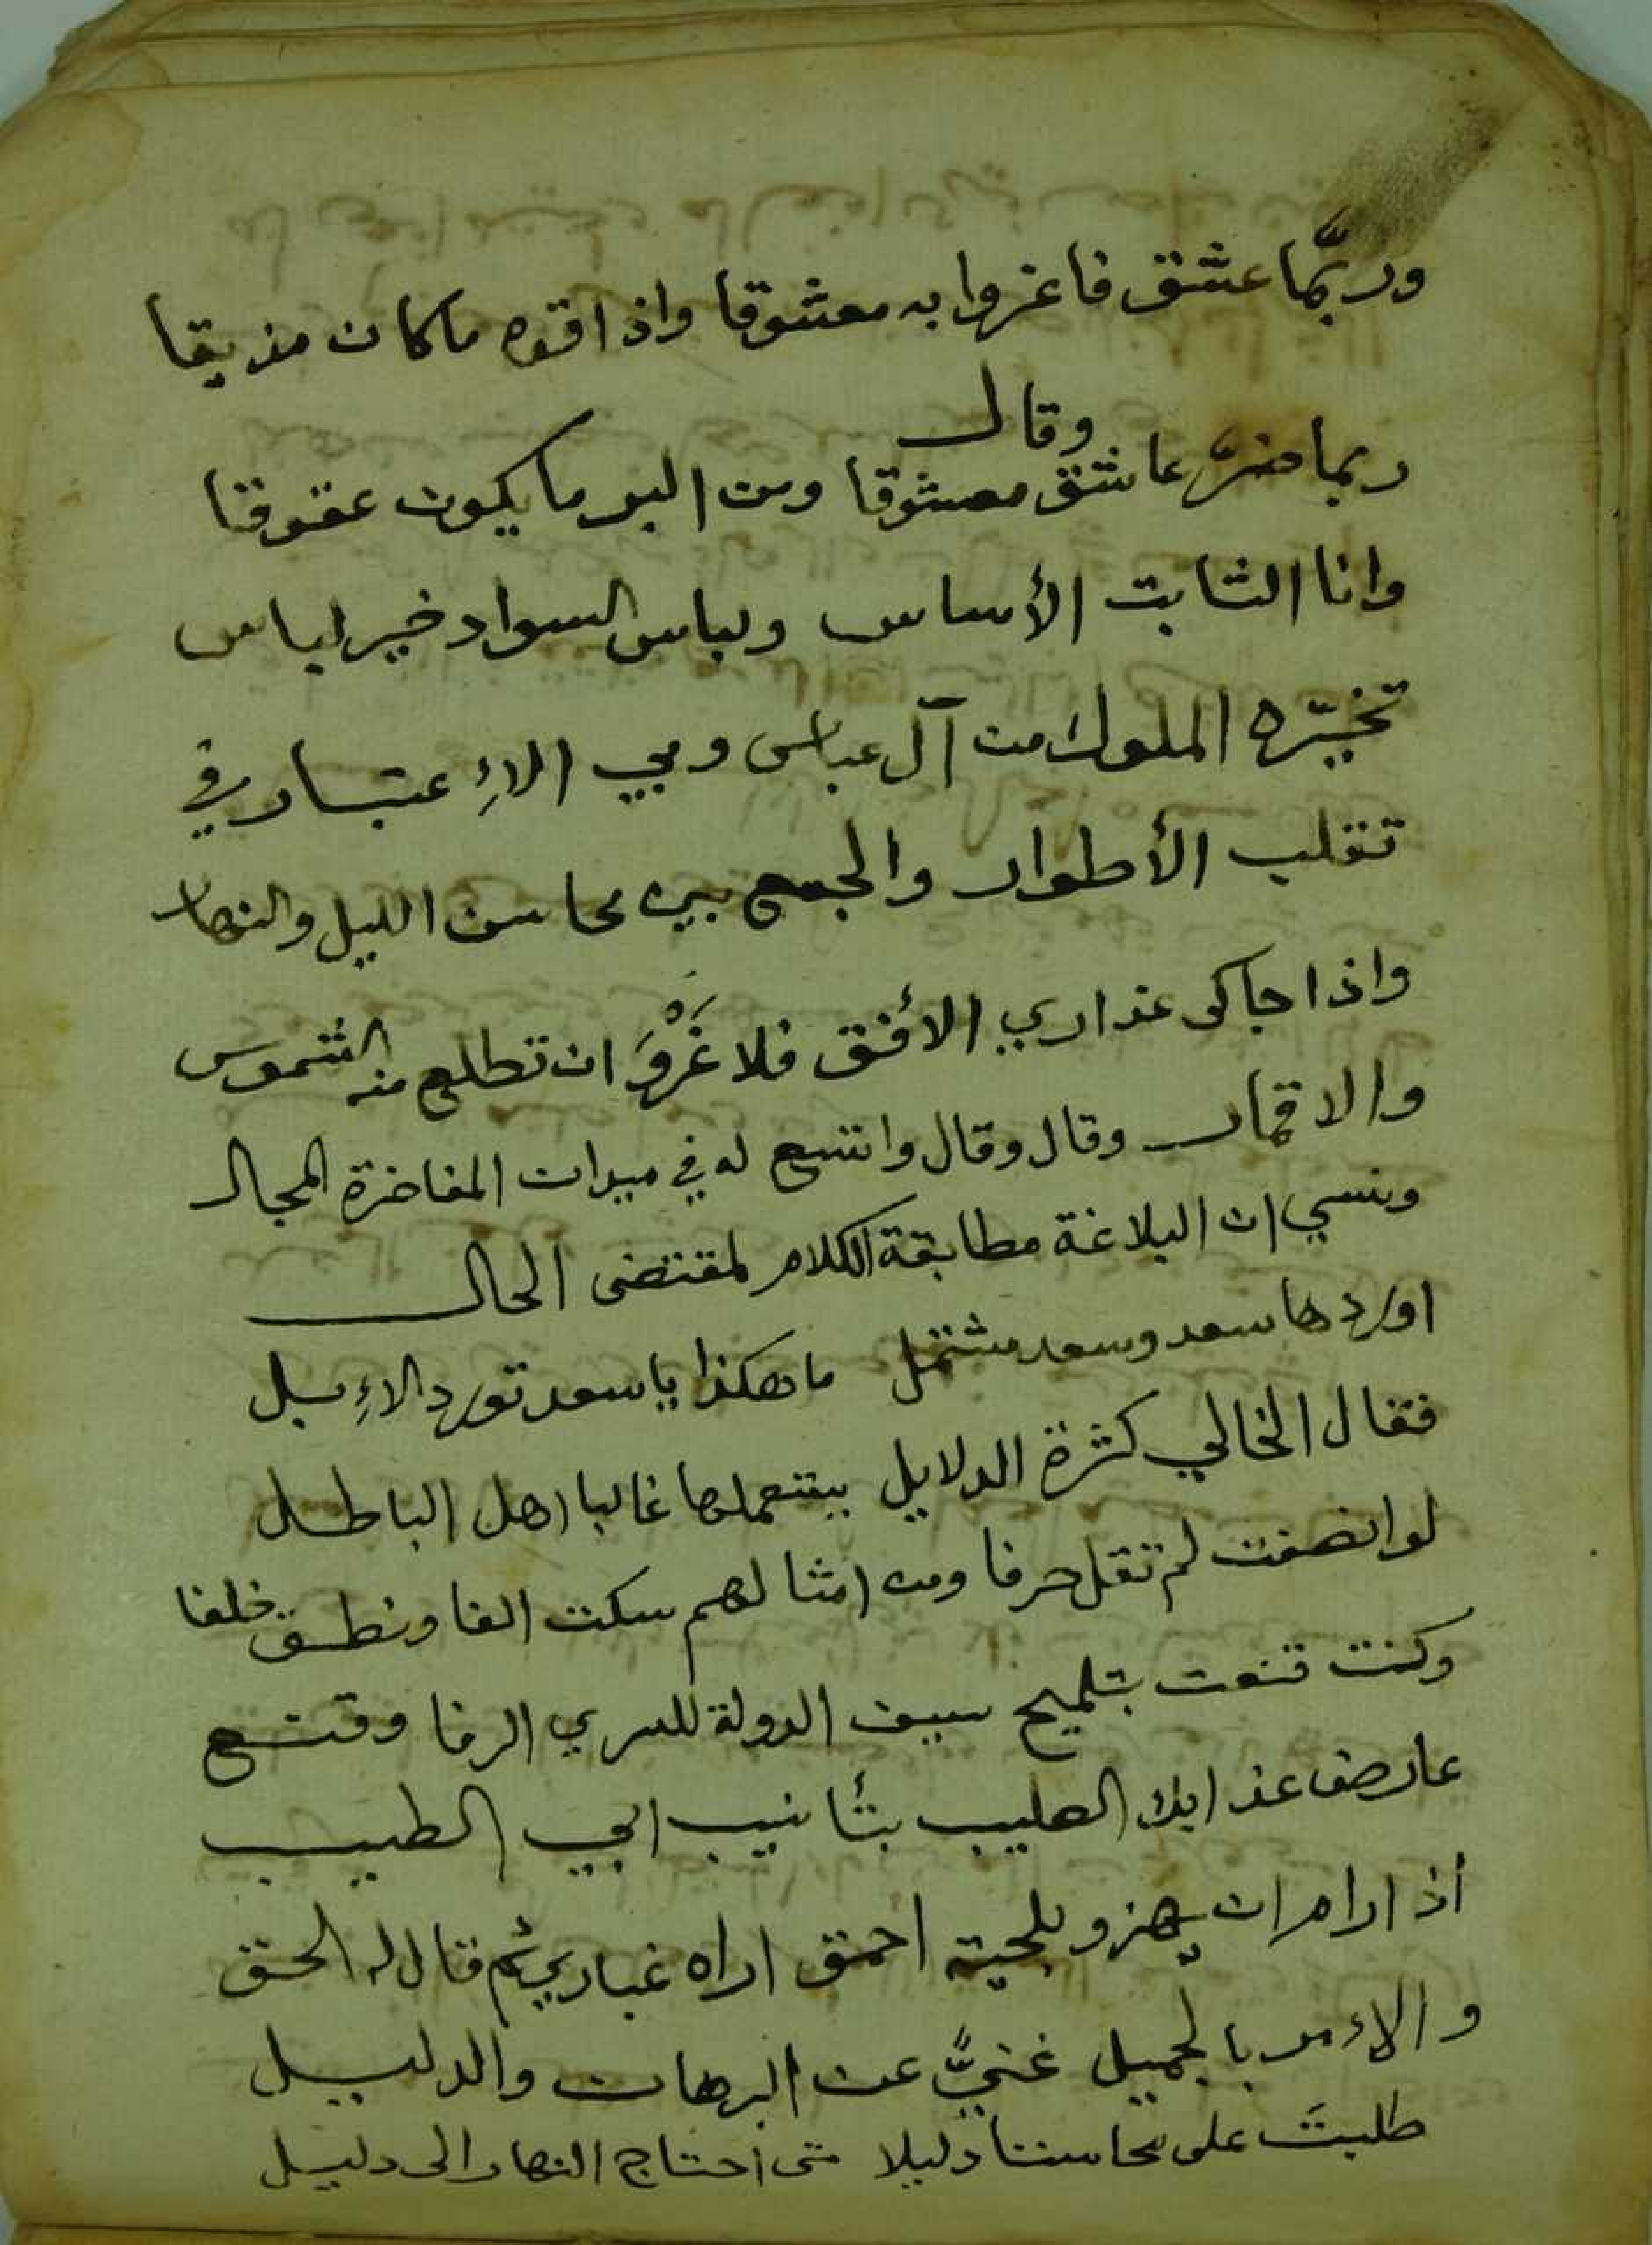 وربّما عشق فاغروا به معشوقا واذاقوه ماكان مذيقا
وقال
ربما ضرّ عاشق معشوقا ومن البر ما يكون عقوقا
وانا الثابت الأساس ولباس السواد خير لباس
تخيّره الملوك من آل عباس وبي الإعتبار في
تقلب الأطوار والجمع بين محاسن الليل والنهار
واذا حاكى عذاري الأفق فلا غَرْوَ ان تطلع منه الشموس
والاقمار وقال وقال واتسع له في ميدان المفاخرة المجال
ونسي ان البلاغة مطابقة الكلام لمقتضى الحال
اوردها سعد وسعد مشتمل ما هكذا يا سعد تورد الإبل
فقال الخالي كثرة الدلايل يستعملها غالبا اهل الباطل
لو انصفت لم تقل حرفا ومن امثالهم سكت الفا ونطق خلفا
وكنت قنعت بتلميح سيف الدولة للسري الرفا وقشع
عارض عذابك الصليب بتأنيب ابي الطيب
اذا رام ان يهزو بلحية احمق اراه غباري ثم قال له الحق
والامر بالجميل غنيٌّ عن البرهان والدليل
طلبتَ على محاسننا دليلا متى احتاج النهار الى دليل